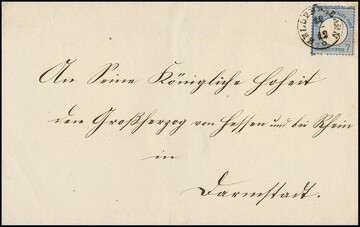 An Seine Königliche Hoheit
den Großherzog von Hessen und bei Rhein
in
Darmstadt.